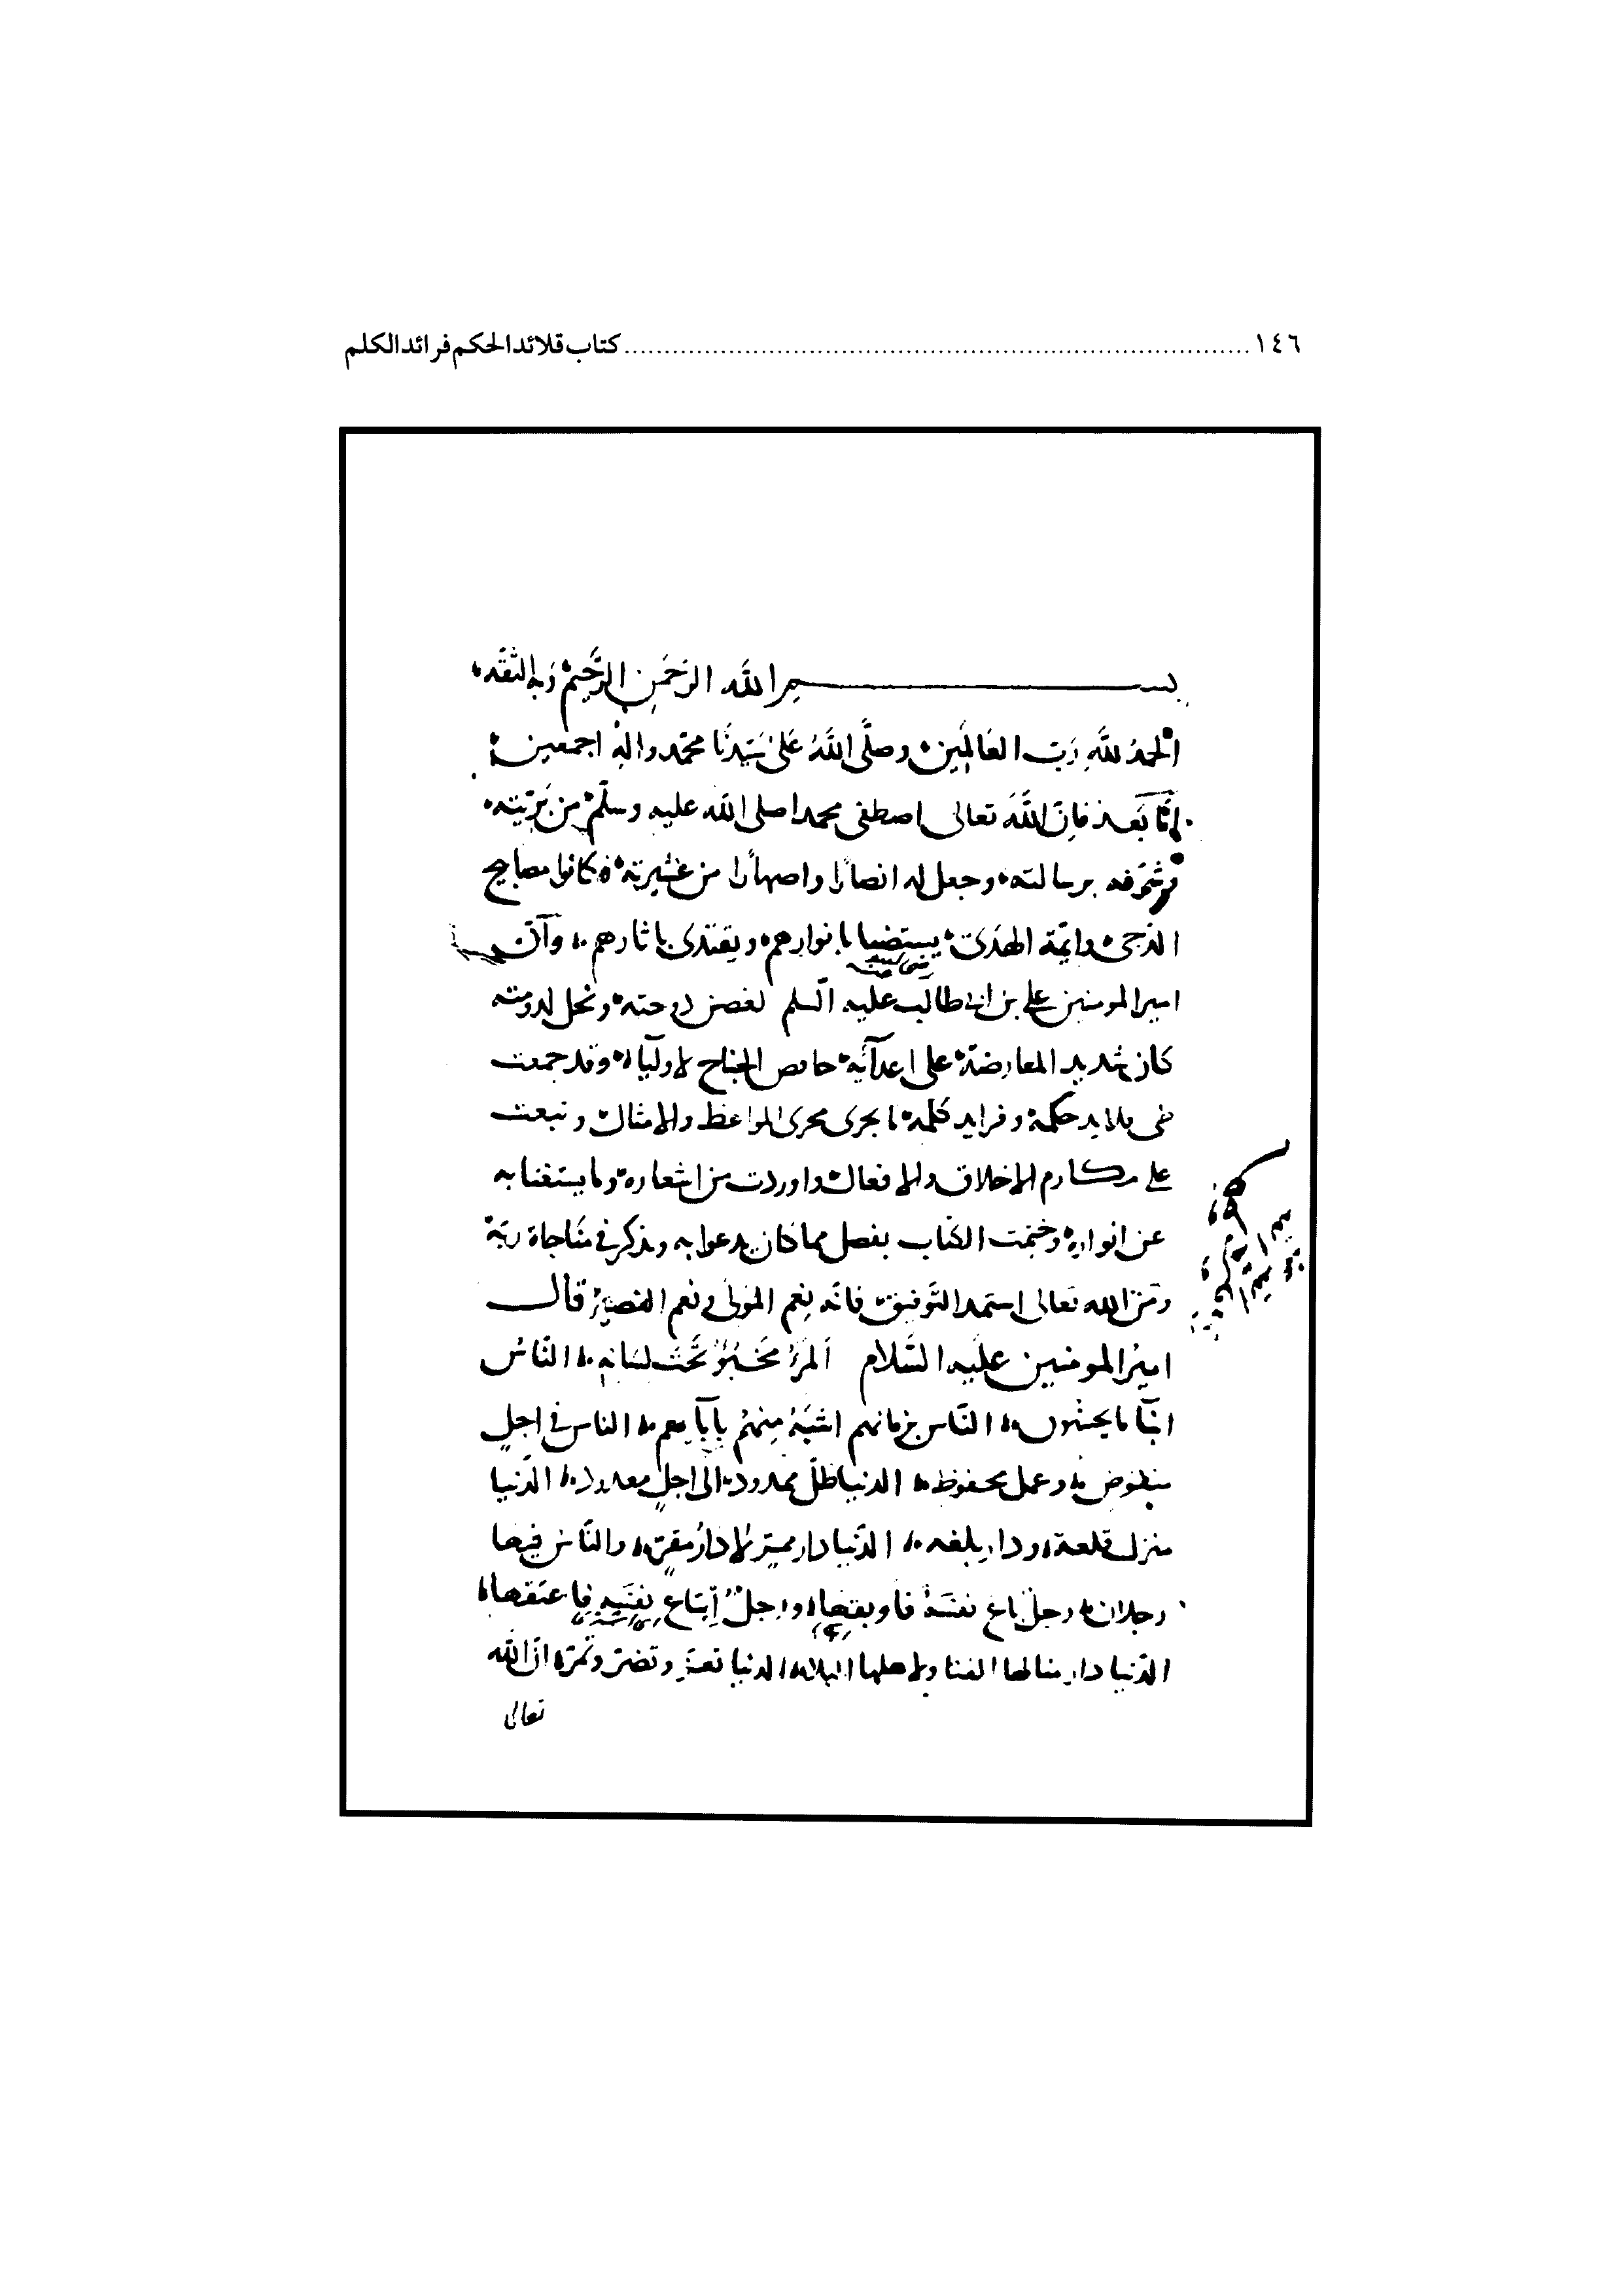 ١٤٦ ........ كتاب قلائد الحكم فرائد الكلم
بسم الله الرَّحمَنِ الرَّحِيمِ وبه الثقة
الحمدُ للَّهِ رَبّ العَالَمِين وصلَّى اللَّهُ عَلى سَيّدنَا محمّد واله اجمعين
امَّا بَعد فان اللَّه تعالى اصطفى محمدا صلى الله عليه وسلّم من بَرِيّته
وشرّفه برسالته وجعل له انصارًا واصهارًا من عَشيرته فكانوا مصابيح
الدّجى وايمّة الهدَى يستضيا بانوارهم ويقتدى باثارهم وآنّ
امير المومنين علي بن ابي طالب عليه السلم لغصن دوحته ونجل لدومته
كان شديد المعارضة على اعدآيه خافض الجناح لاوليآيه وقد جمعت
من قلايد حكمه وفرايد كلمه ما يجرى مجرى المواعظ والامثال ونبعث
على مكارم الاخلاق والافعال واوردت من اشعاره وما يستغنا به
عن انواره وختمت الكتاب بفصل مما كان يدعوا به ويذكر فى مناجاة ربّه
ومن الله تعالى استمد التوفيق فانّه نِعم المَولى ونعم النصير قال
اميرُ المومنين علَيه السَّلام المَرءُ مَخبُوٌ تَحتَ لسَانه النّاسُ
ابنآ ما يحسنُون النّاس بزمانهم اشبَهُ مِنهُم بآبآيهم الناس في اجلٍ
منقوض وعمل محفوظ الدنيا ظلّ ممدود الى اجلٍ معدود الدّنيا
منزل قلعة ودار بلغه الدّنيا دار ممرّ لا دارُ مقرّ والنّاس فيها
رجلان رجلٌ باع نفسَهُ فاوبقها ورجلٌ اِبتاع نفسَه فاعتقها
الدّنيا دار منالها الفنا ولاهلها البلاء الدنيا تغرّ وتضرّ وتمرّ انّ الله
تعالى